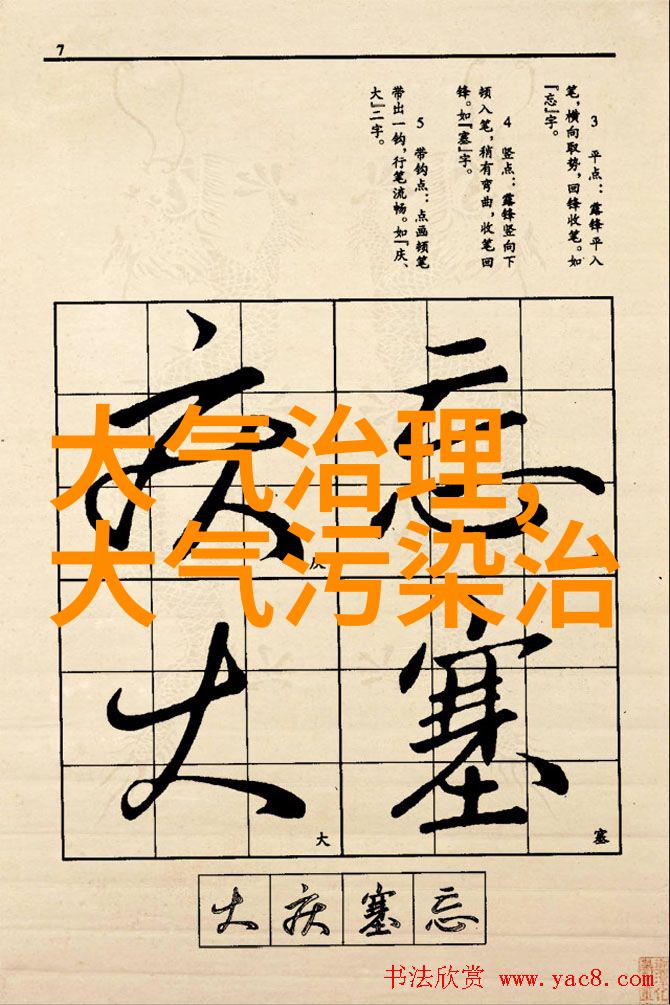 7
3 平点：露锋平入
笔，横向取势，回锋收笔。如
『忘』字。
4 竖点：露锋竖向下
顿入笔，稍有弯曲，收笔回
锋。如『塞』字。
5 带钩点：点画顿笔
带出一钩，行笔流畅。如『庆、
大』二字。
庆 忘
大气治理，
大气污染治
庆
大 塞
大 塞
大 庆 塞 忘
书法欣赏 www.yac8.com